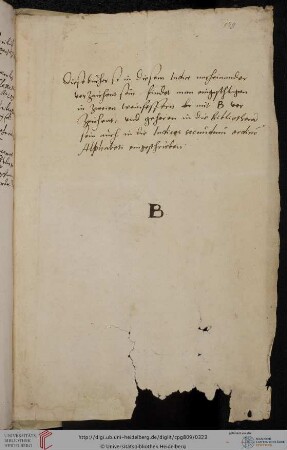 150
Dise bucher so in diesem Indice nacheinander
verzeichnet sein findet man eingeschlagen
in zweien weinfessern so mit B ver
zeichnet, und gehoren in die Bibliotheca
sein auch in die Indices communi ordine
Alphabeti eingeschrieben
B
UNIVERSITÄTS-
BIBLIOTHEK
HEIDELBERG
http://digi.ub.uni-heidelberg.de/diglit/cpg809/0323
© Universitätsbibliothek Heidelberg
gefördert durch die